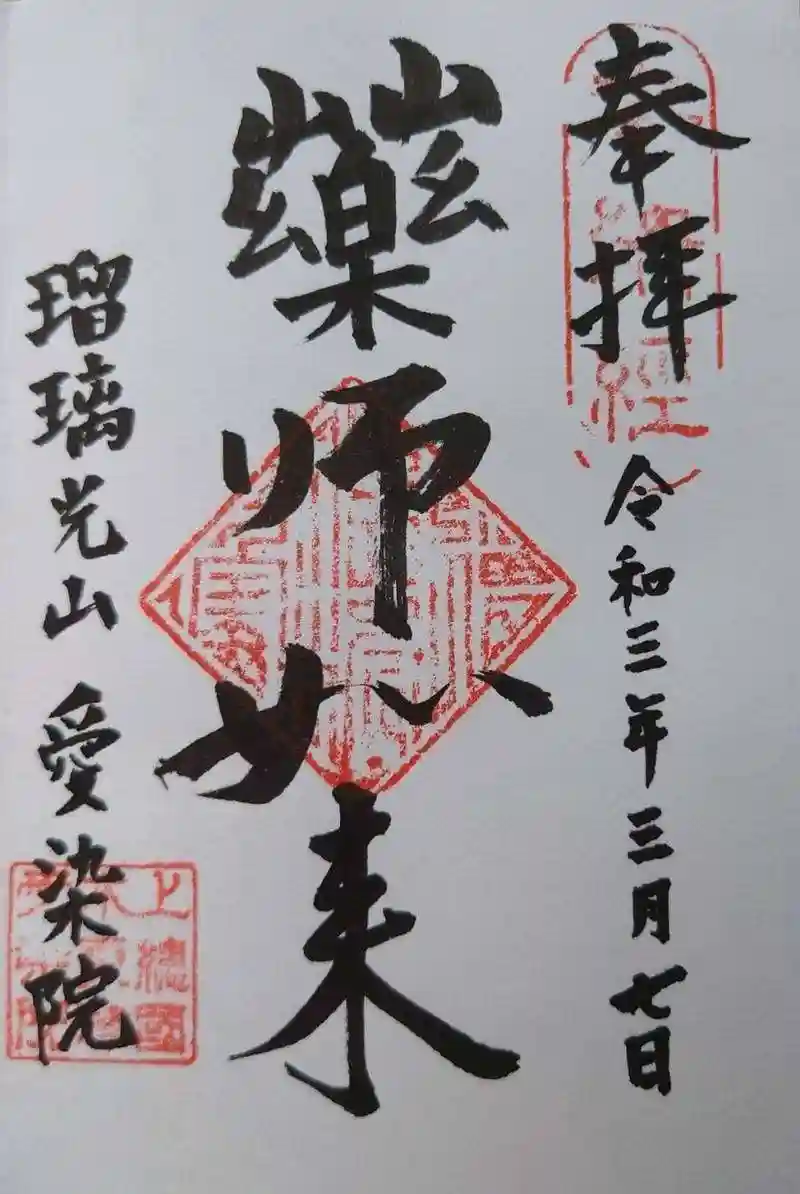 奉拝
令和三年三月七日
薬師如来
瑠璃光山 愛染院
上総国